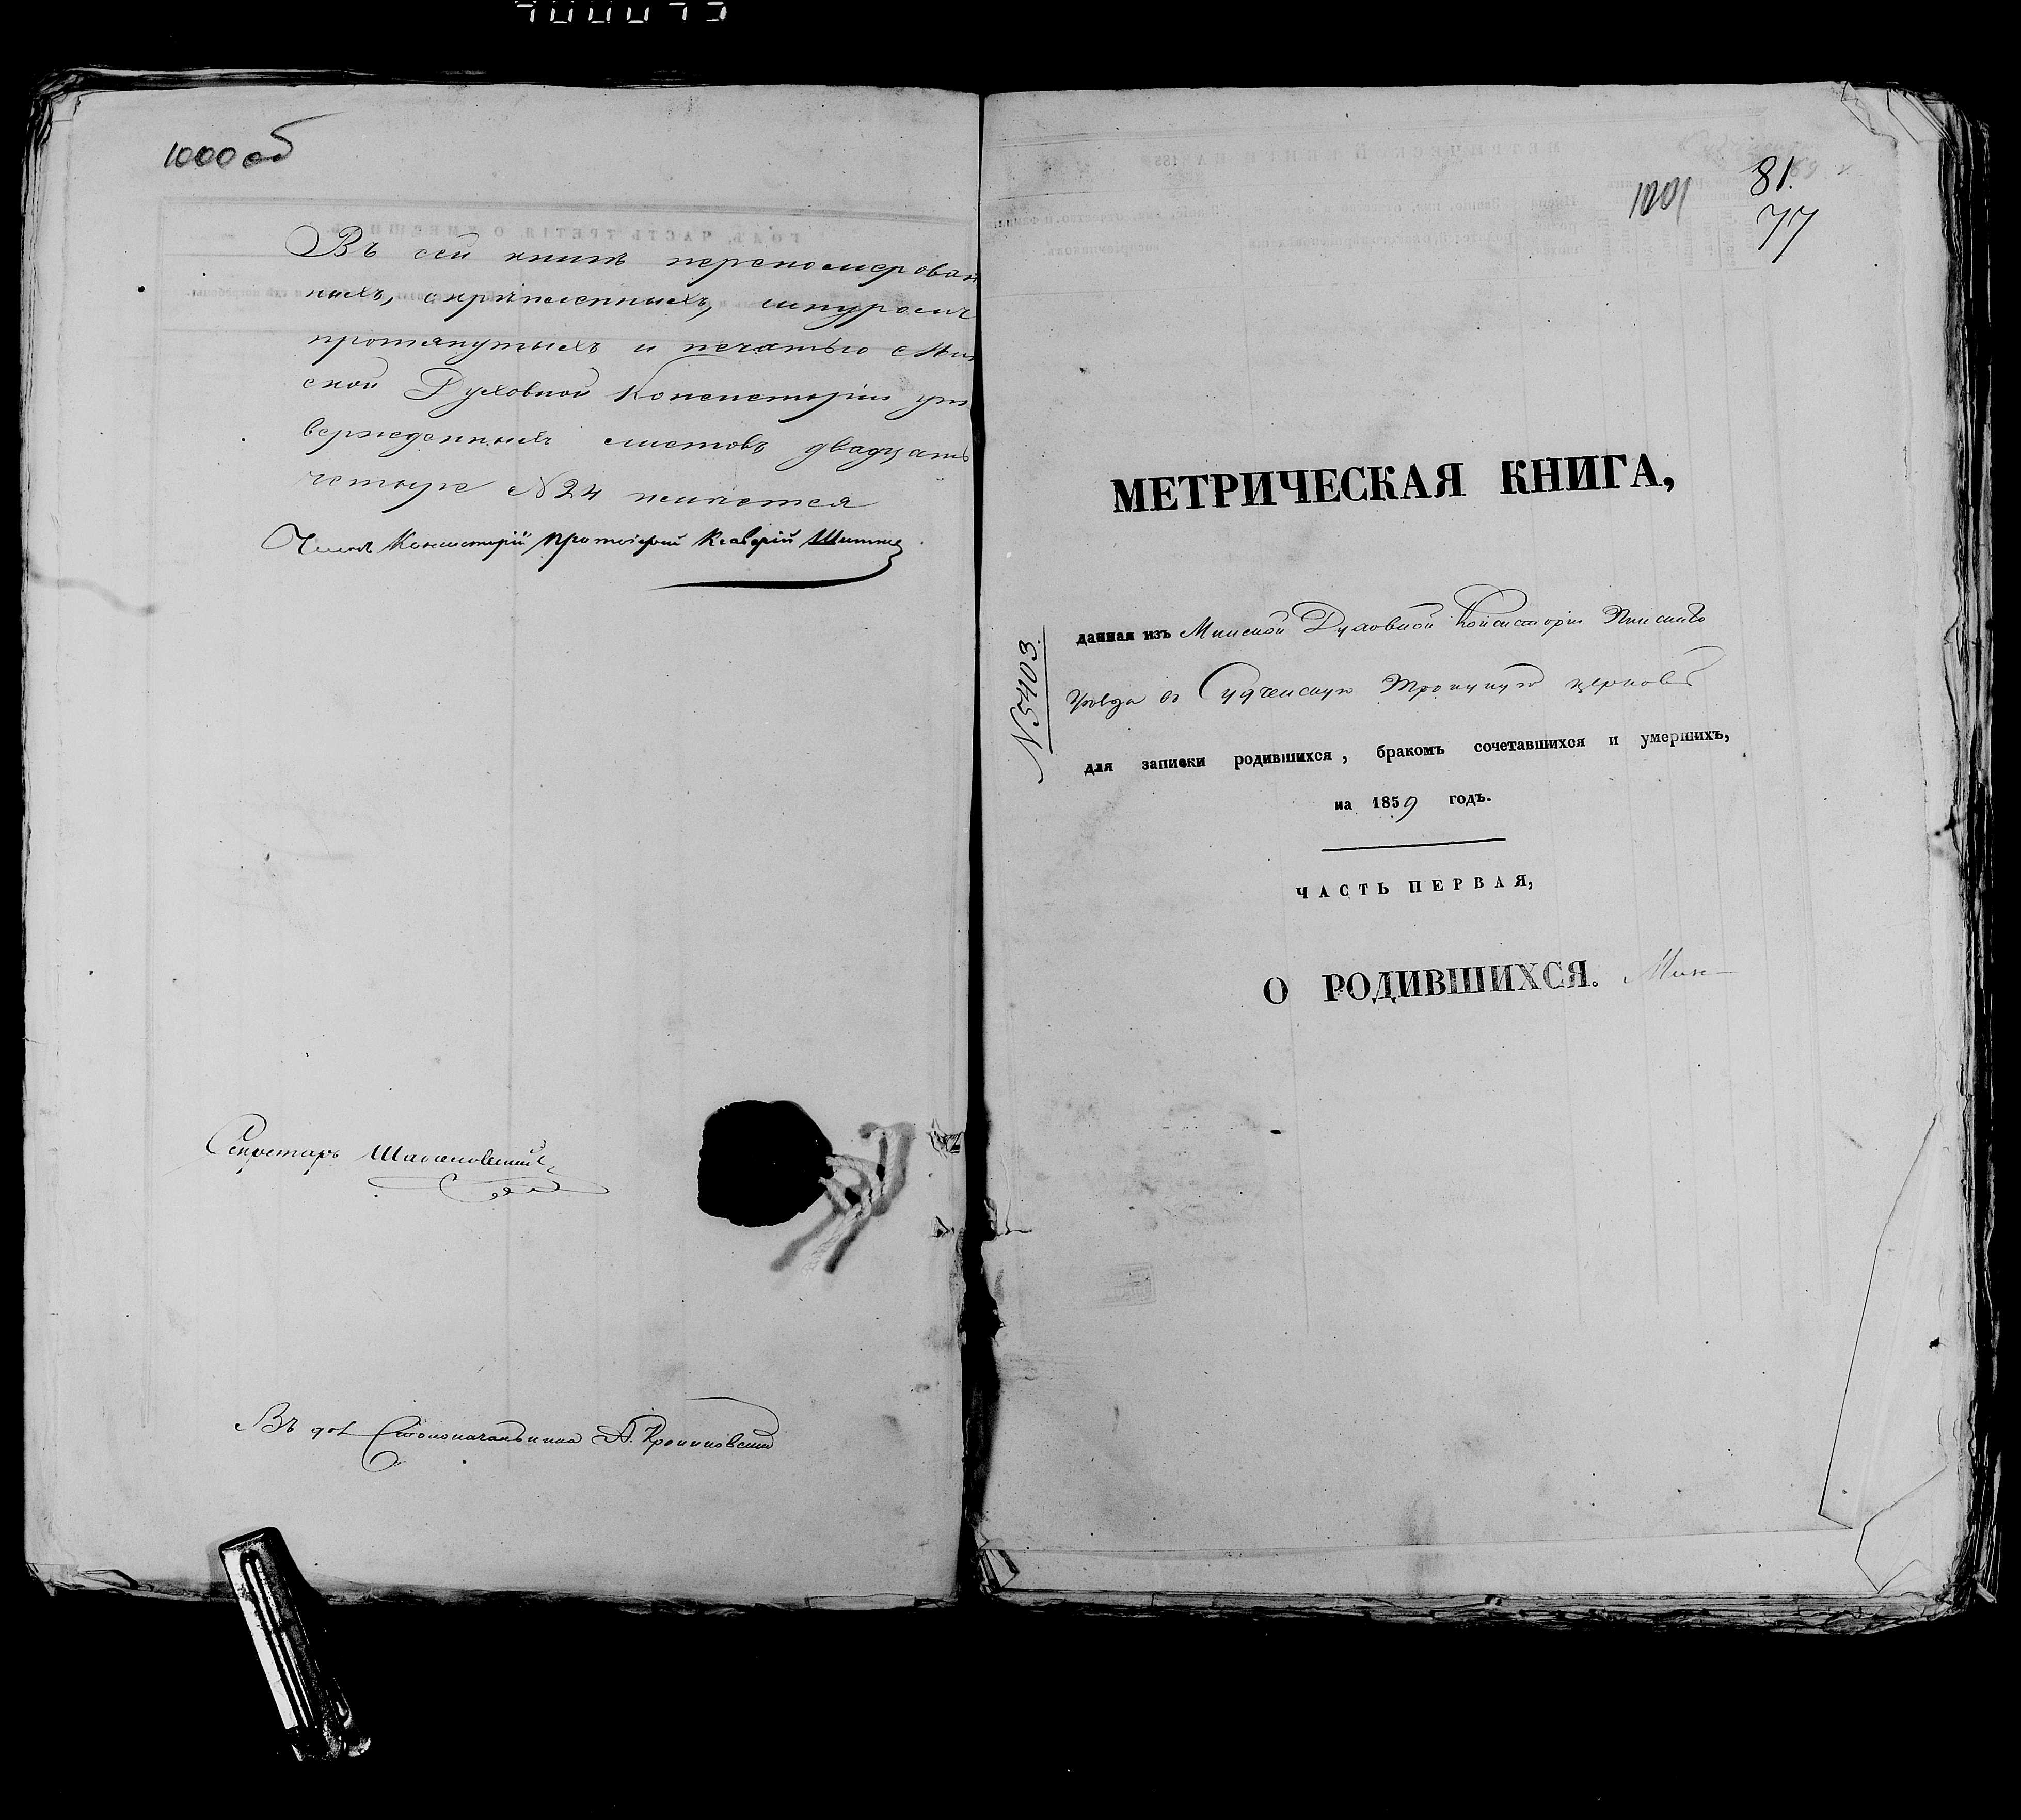 1000 об
Въ сей книгѣ переномерован
ныхъ, скрѣпленныхъ, шнуромъ
протянутыхъ и печатью Мин
ской Духовной Консисторіи ут
вержденныхъ листовъ двадцать
четыре №24 имѣется
Членъ Консисторіи Протоіерей
Секретарь
Въ дол Столоначальника
1001
81.
77
МЕТРИЧЕСКАЯ КНИГА,
№5403.
данная изъ Минской Духовной Консисторіи Пинскаго
Уѣзда въ Судченскую Троицкую церковь
для записки родившихся, бракомъ сочетавшихся и умершихъ,
на 1859 годъ.
ЧАСТЬ ПЕРВАЯ,
О РОДИВШИХСЯ. Мин